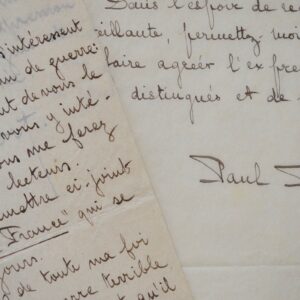 s'intéressent
de guerre
de vous le
vous y inté-
me ferez
lecteurs.
mettre ci-joint
France" qui se
jours.
de toute ma foi
terrible
qu'il
Dans l'espoir de
veillante, permettez moi
faire agréer l'ex
distingués et de
Paul